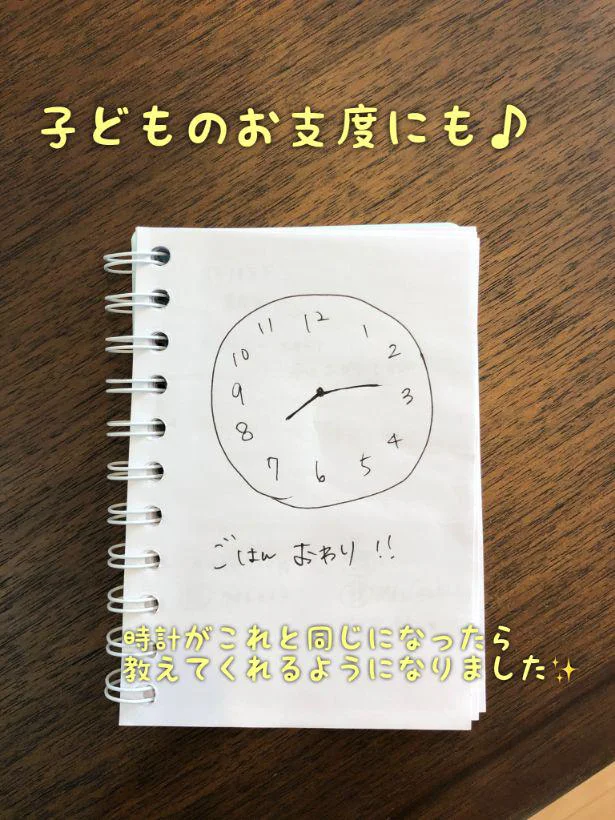 子どものお支度にも♪
12
11
1
10
2
9
3
8
4
7
5
6
ごはん おわり !!
時計がこれと同じになったら
教えてくれるようになりました✨